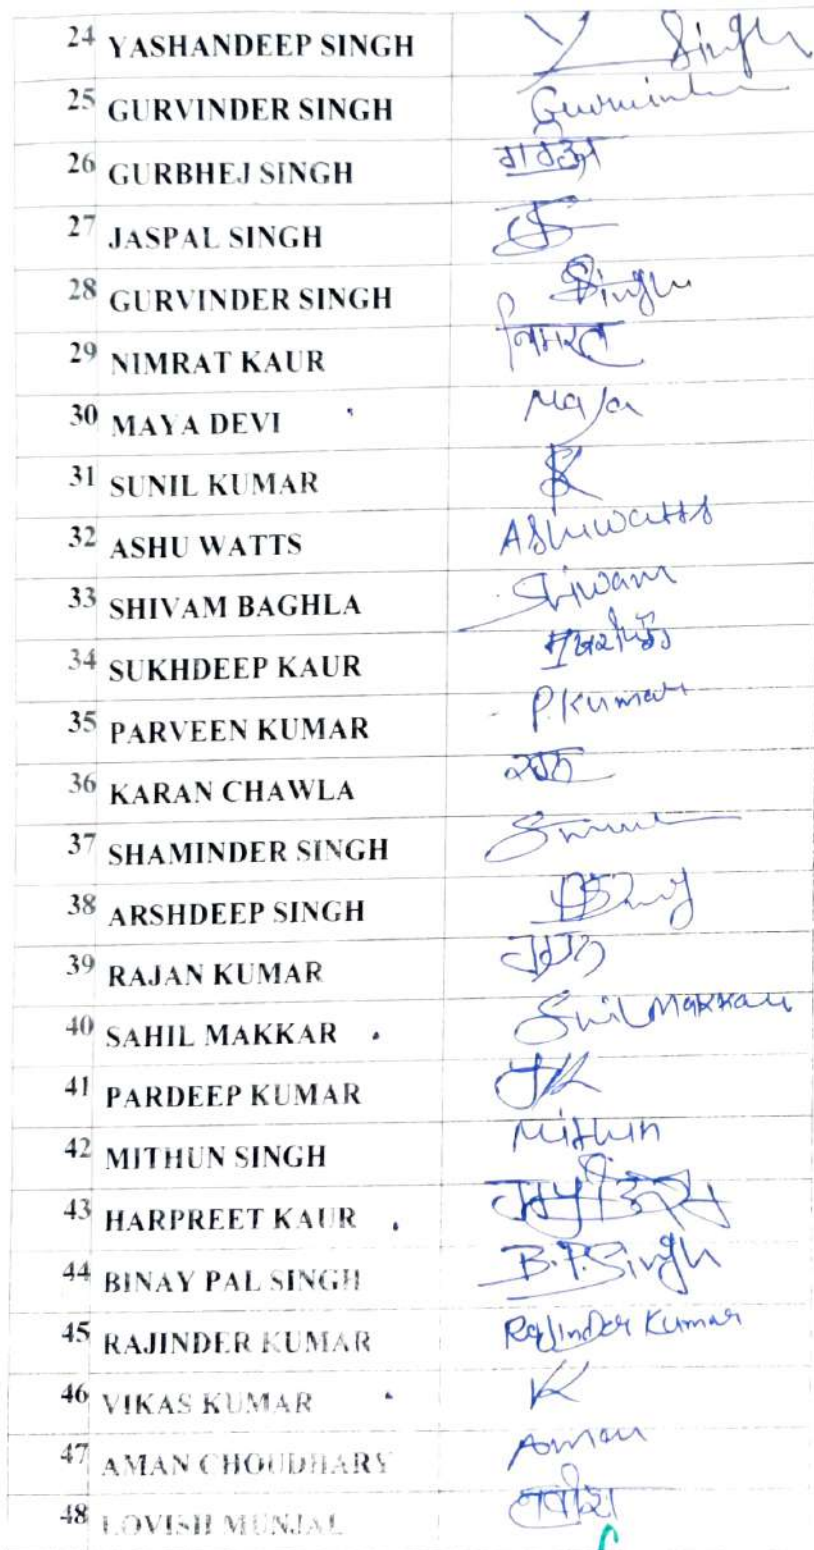 24 YASHANDEEP SINGH Y Singh
25 GURVINDER SINGH Gurvinder
26 GURBHEJ SINGH
27 JASPAL SINGH
28 GURVINDER SINGH Singh
29 NIMRAT KAUR निमरत
30 MAYA DEVI Maya
31 SUNIL KUMAR SK
32 ASHU WATTS Ashu watts
33 SHIVAM BAGHLA Shivam
34 SUKHDEEP KAUR
35 PARVEEN KUMAR P.Kumar
36 KARAN CHAWLA
37 SHAMINDER SINGH
38 ARSHDEEP SINGH
39 RAJAN KUMAR
40 SAHIL MAKKAR Makkar
41 PARDEEP KUMAR PK
42 MITHUN SINGH Mithun
43 HARPREET KAUR
44 BINAY PAL SINGH B.P.Singh
45 RAJINDER KUMAR Rajinder Kumar
46 VIKAS KUMAR VK
47 AMAN CHOUDHARY Aman
48 LOVISH MUNJAL